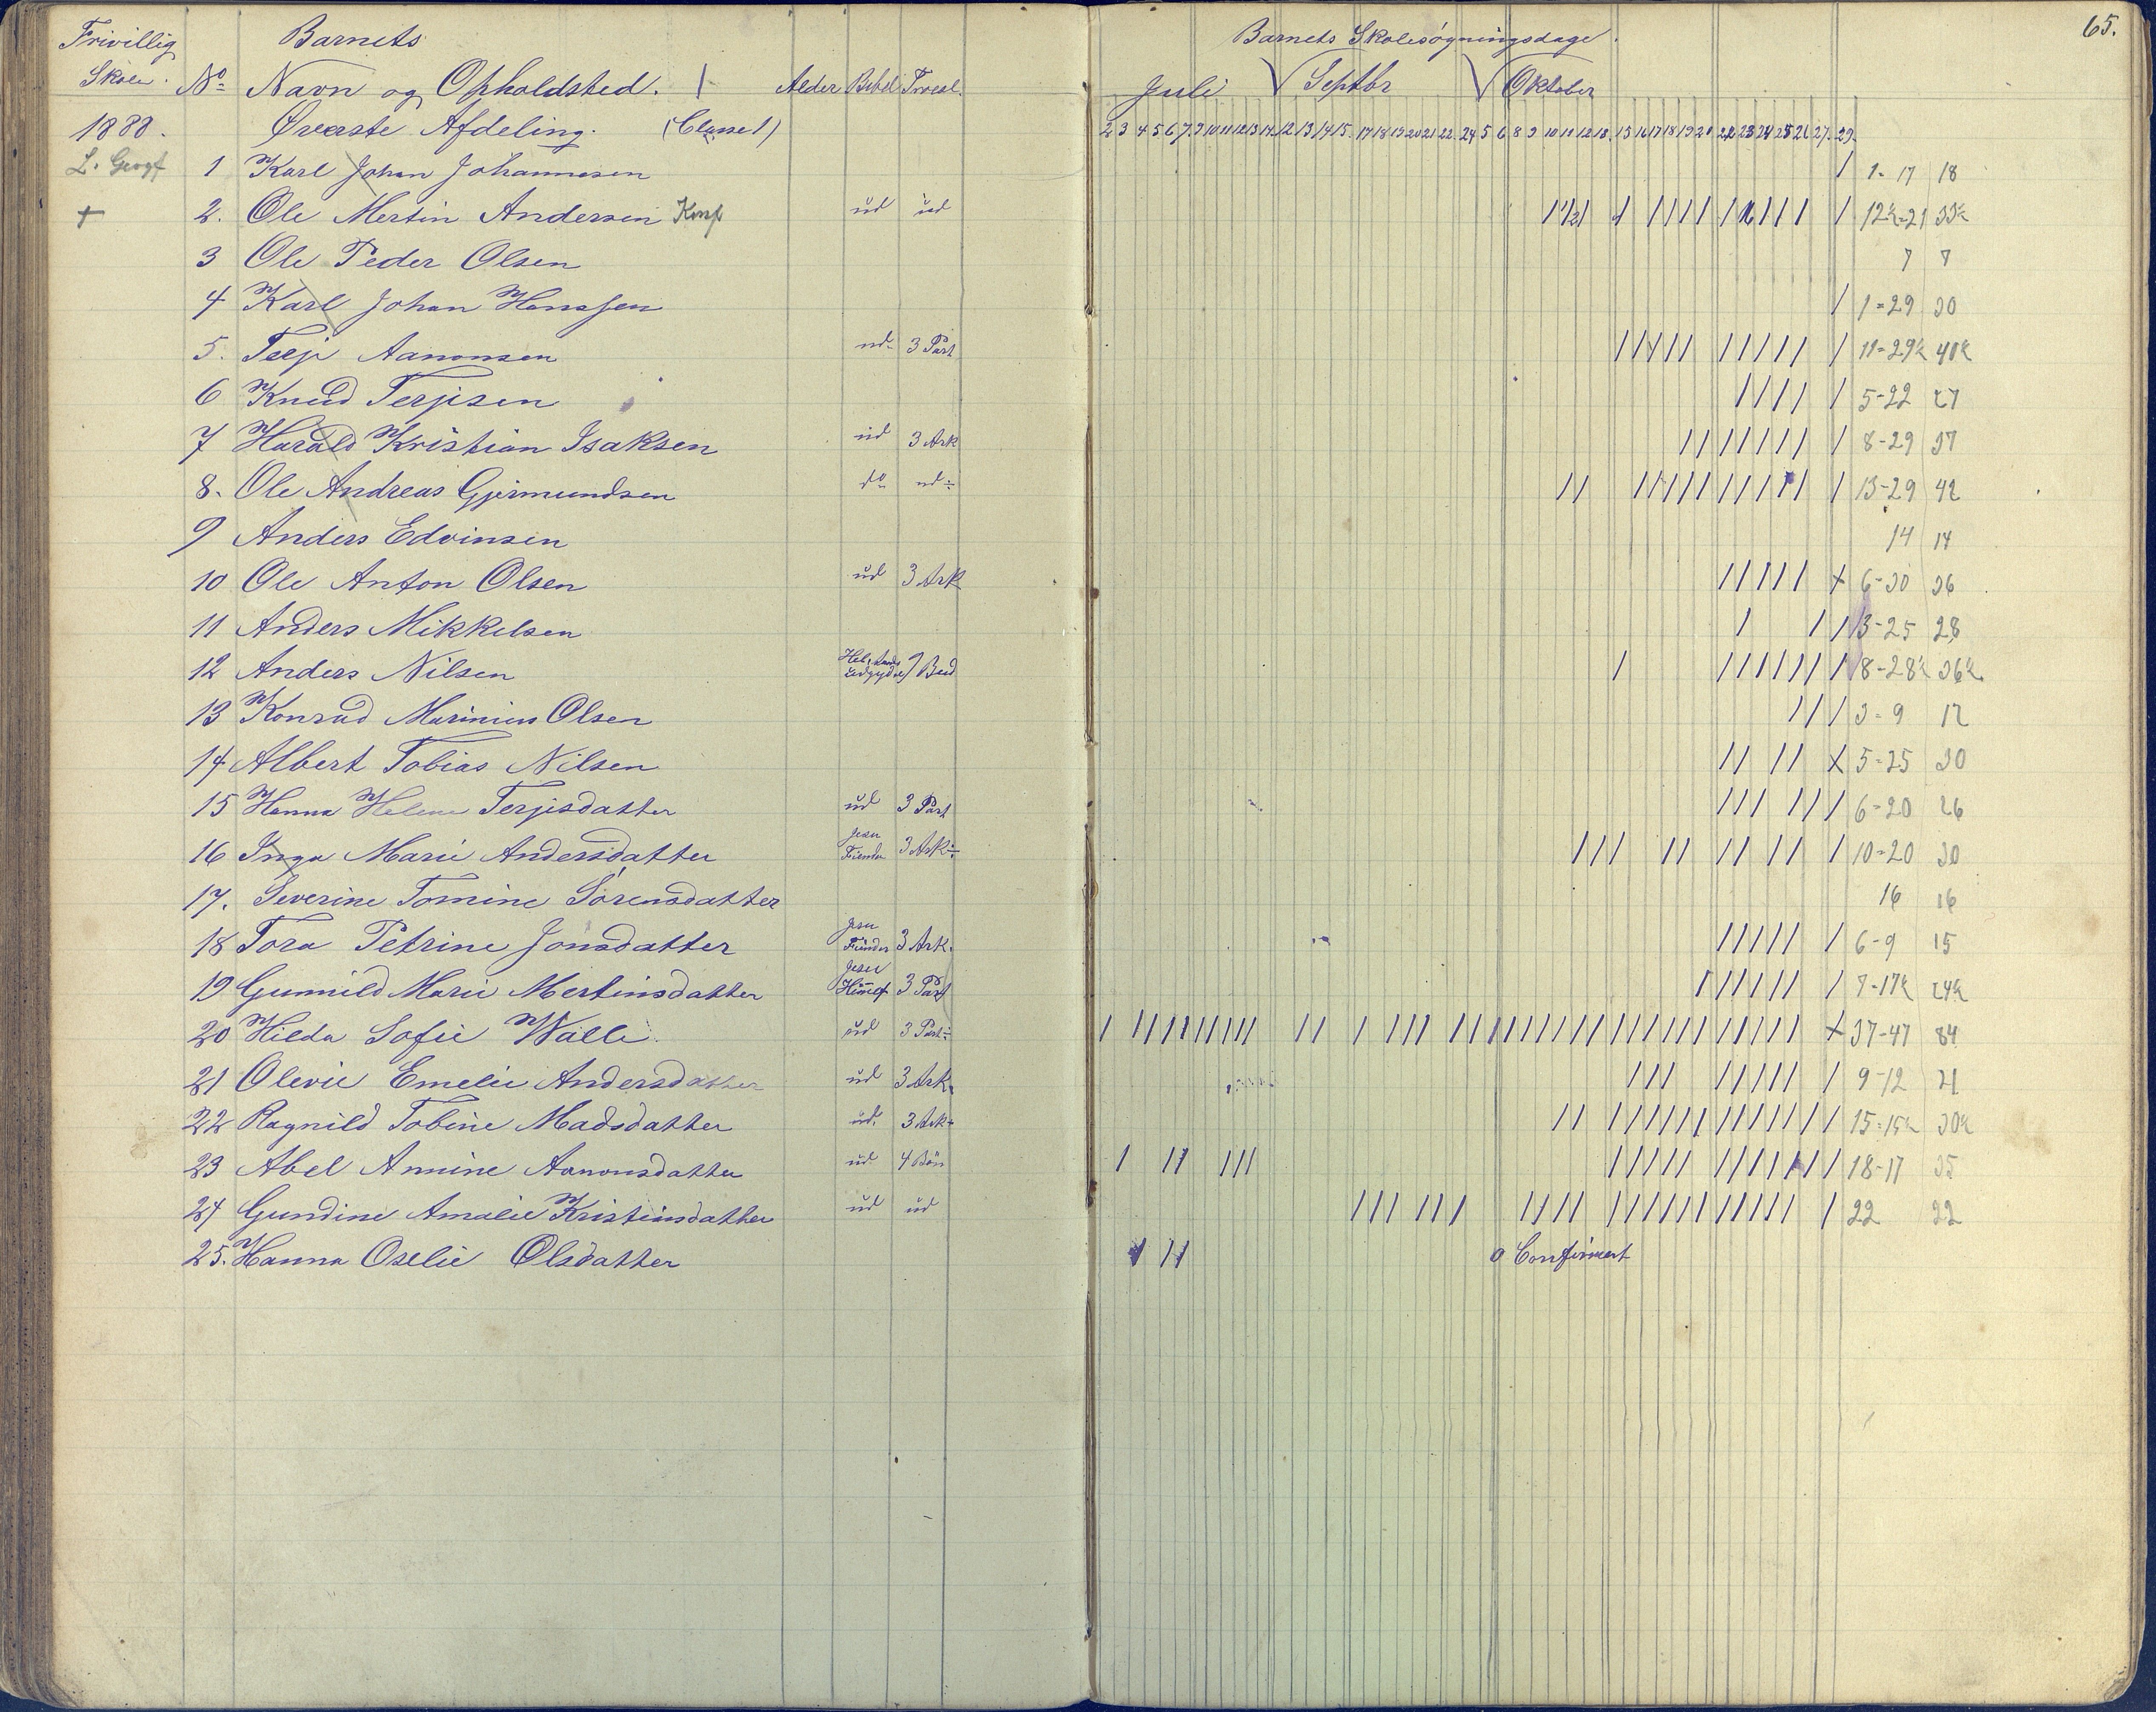 Frivillig Barnets Barnets Skolesøgningsdage. 65.
Skole. No Navn og Opholdsted. Alder Bibel Troesl. Juli Septbr Oktober
1888. Øverste Afdeling. (Classe 1) 2 3 4 5 6 7 9 10 11 12 13 14 12 13 14 15 17 18 19 20 21 22 24 5 6 8 9 10 11 12 13 15 16 17 18 19 20 22 23 24 25 26 27. 29.
1 Karl Johan Johannesen / 1 - 17 18
+ 2. Ole Mertin Andersen Konf ud ud 12½-21 33½
3 Ole Peder Olsen 7 7
4 Karl Johan Hanssen / 1=29 30
5. Terje Aanonsen ud- 3 Part 11=29½ 40½
6 Knud Terjisen //// / 5-22 27
7 Harald Kristian Isaksen ud 3 Ark 8-29 37
8. Ole Andreas Gjermundsen do ud 13-29 42
9 Anders Edvinsen 14 14
10 Ole Anton Olsen ud 3 Ark ///// X 6-30 36
11 Anders Mikkelsen / / / 3-25 28
12 Anders Nilsen 9 Bud / ////// / 8-28½ 36½
13 Konrad Marinius Olsen // / 3=9 12
14 Albert Tobias Nilsen // // X 5=25 30
15 Hanna Helene Terjisdatter ud 3 Part /// // / 6-20 26
Jesu
16 Inga Marie Andersdatter Fiender 3 Ark /// // // // / 10=20 30
17. Severine Tomine Sørensdatter 16 16
Jesu
18 Tora Petrine Jonsdatter Fiender 3 Ark. ///// / 6-9 15
Jesu
19 Gunnild Marie Mertinsdatter Himelf 3 Part 7-17½ 24½
20 Hilda Sofie Walle ud 3 Part X 37-47 84
21 Olevie Emelie Andersdatter ud 3 Ark. /// ///// / 9-12 21
22 Ragnild Tobine Madsdatter ud. 3 Ark+ 15=15½ 30½
23 Abel Annine Aanonsdatter ud 4 Bøn 18-17 35
24 Gundine Amalie Kristiansdatter ud ud 22 22
25. Hanna Oselie Olsdatter / // 0 Confirmert